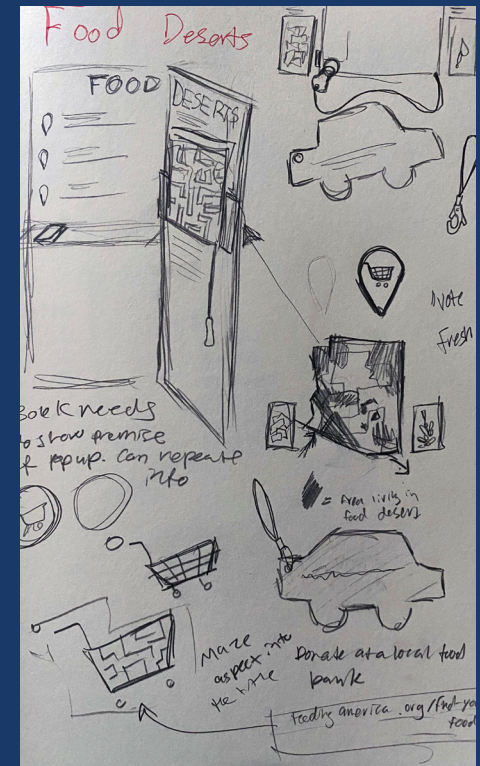 Food Deserts
FOOD
DESERTS
Fresh
Book needs
to show premise
of popup. Can repeate
info
= Area living in
food desert
Maze
aspect into
the
Donate at a local food
bank
feeding america.org/find-yo
food